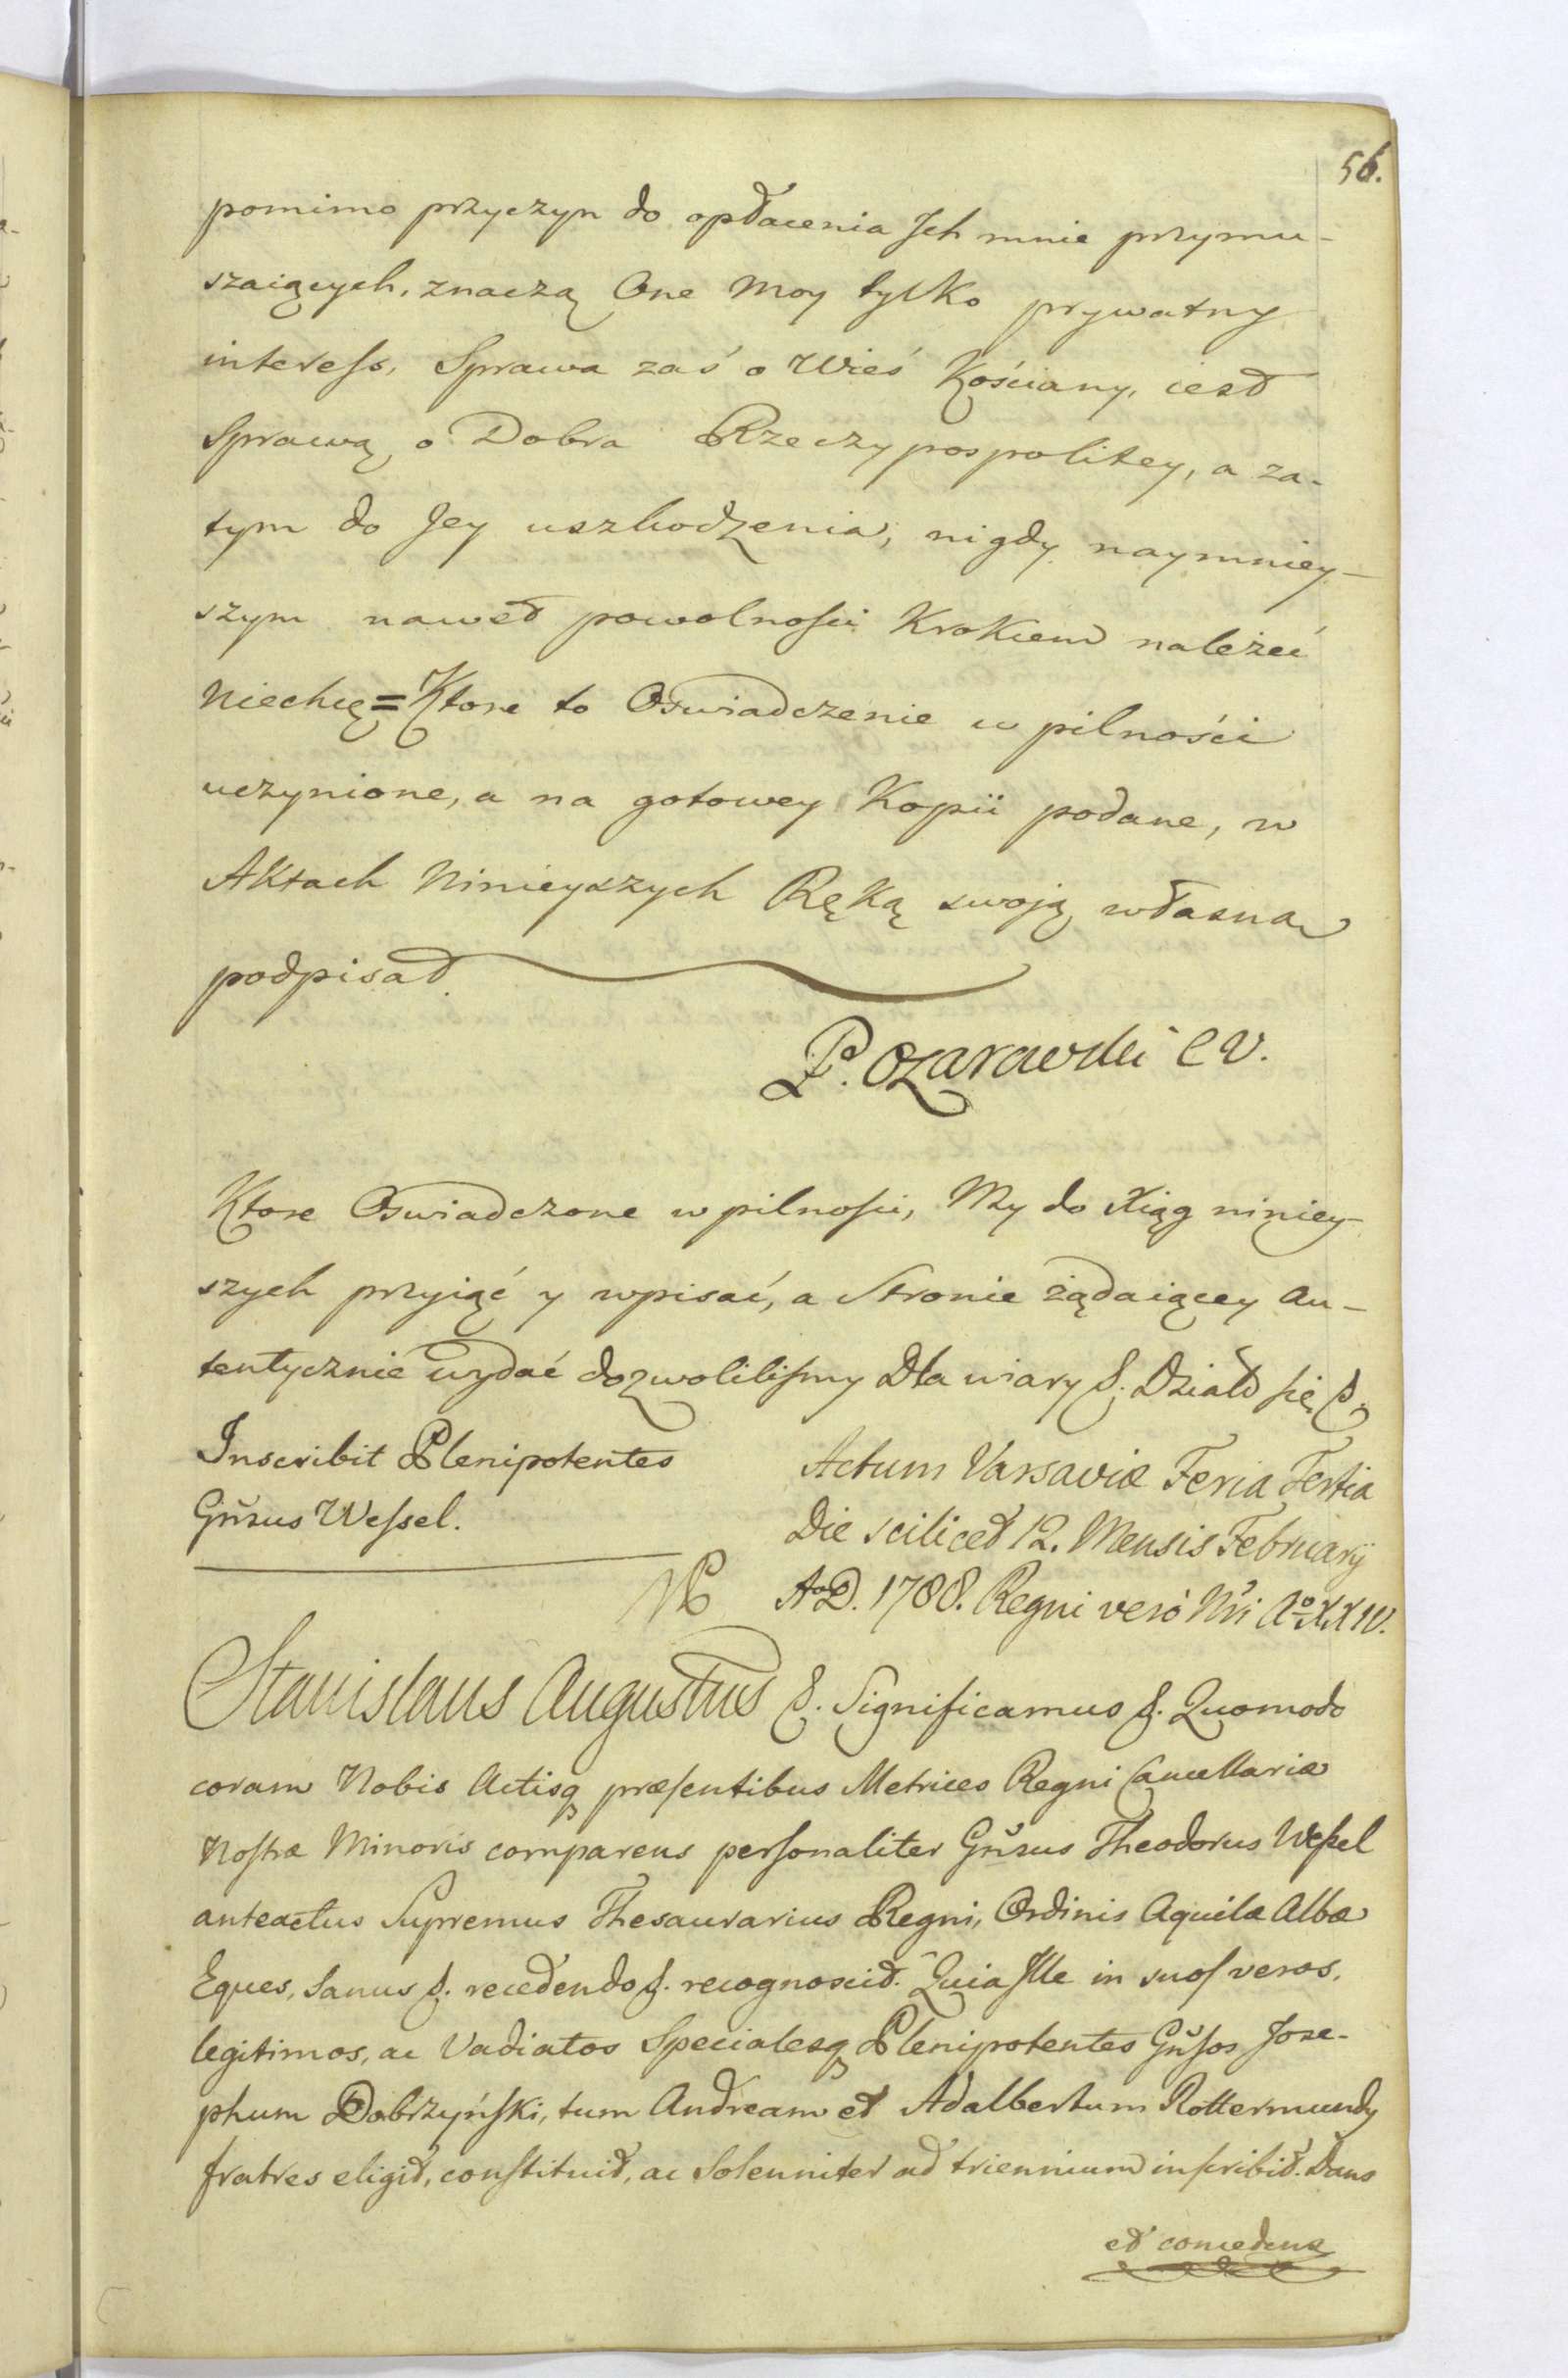 56.
pomimo przyczyn do opłacenia Jch mnie przymu-
szaiących, znaczą One Moy tylko prywatny
interess, Sprawa zaś o Wieś Kościany, iest
Sprawą o Dobra Rzeczypospolitey, a za-
tym do Jey uszkodzenia, nigdy naymniey-
szym nawet powolności Krokiem należeć
Niechcę = Ktore to Oswiadczenie w pilności
uczynione, a na gotowey Kopii podane, w
Aktach Ninieyszych Ręką swoią własną
podpisał.
P. Ożarowski
Ktore Oswiadczone w pilności, My do Xiąg niniey-
szych przyiąć y wpisać, a Stronie żądaiącey au-
tentycznie wydać dozwolilismy Dla wiary &. Działo się &.
Inscribit Plenipotentes
Gnsus Wessel.
Actum Varsaviæ Feria Tertia
Die scilicet 12. Mensis Februarij
A.D. 1788. Regni verò Nri Aº XXIV.
Stanislaus Augustus &. Significamus &. Quomodo
coram Nobis Actisq præsentibus Metrices Regni Cancellariæ
Nostræ Minoris comparens personaliter Gnsus Theodorus Wessel
anteactus Supremus Thesaurarius Regni, Ordinis Aquilæ Albæ
Eques, sanus &. recedendo &. recognoscit. Quia Ille in suos veros,
legitimos, ac Vadiatos Specialesq Plenipotentes Gnsos Jose-
phum Dobrzyński, tum Andream et Adalbertum Rottermundy
fratres eligit, constituit, ac Solenniter ad triennium inscribit. Dans
et concedens